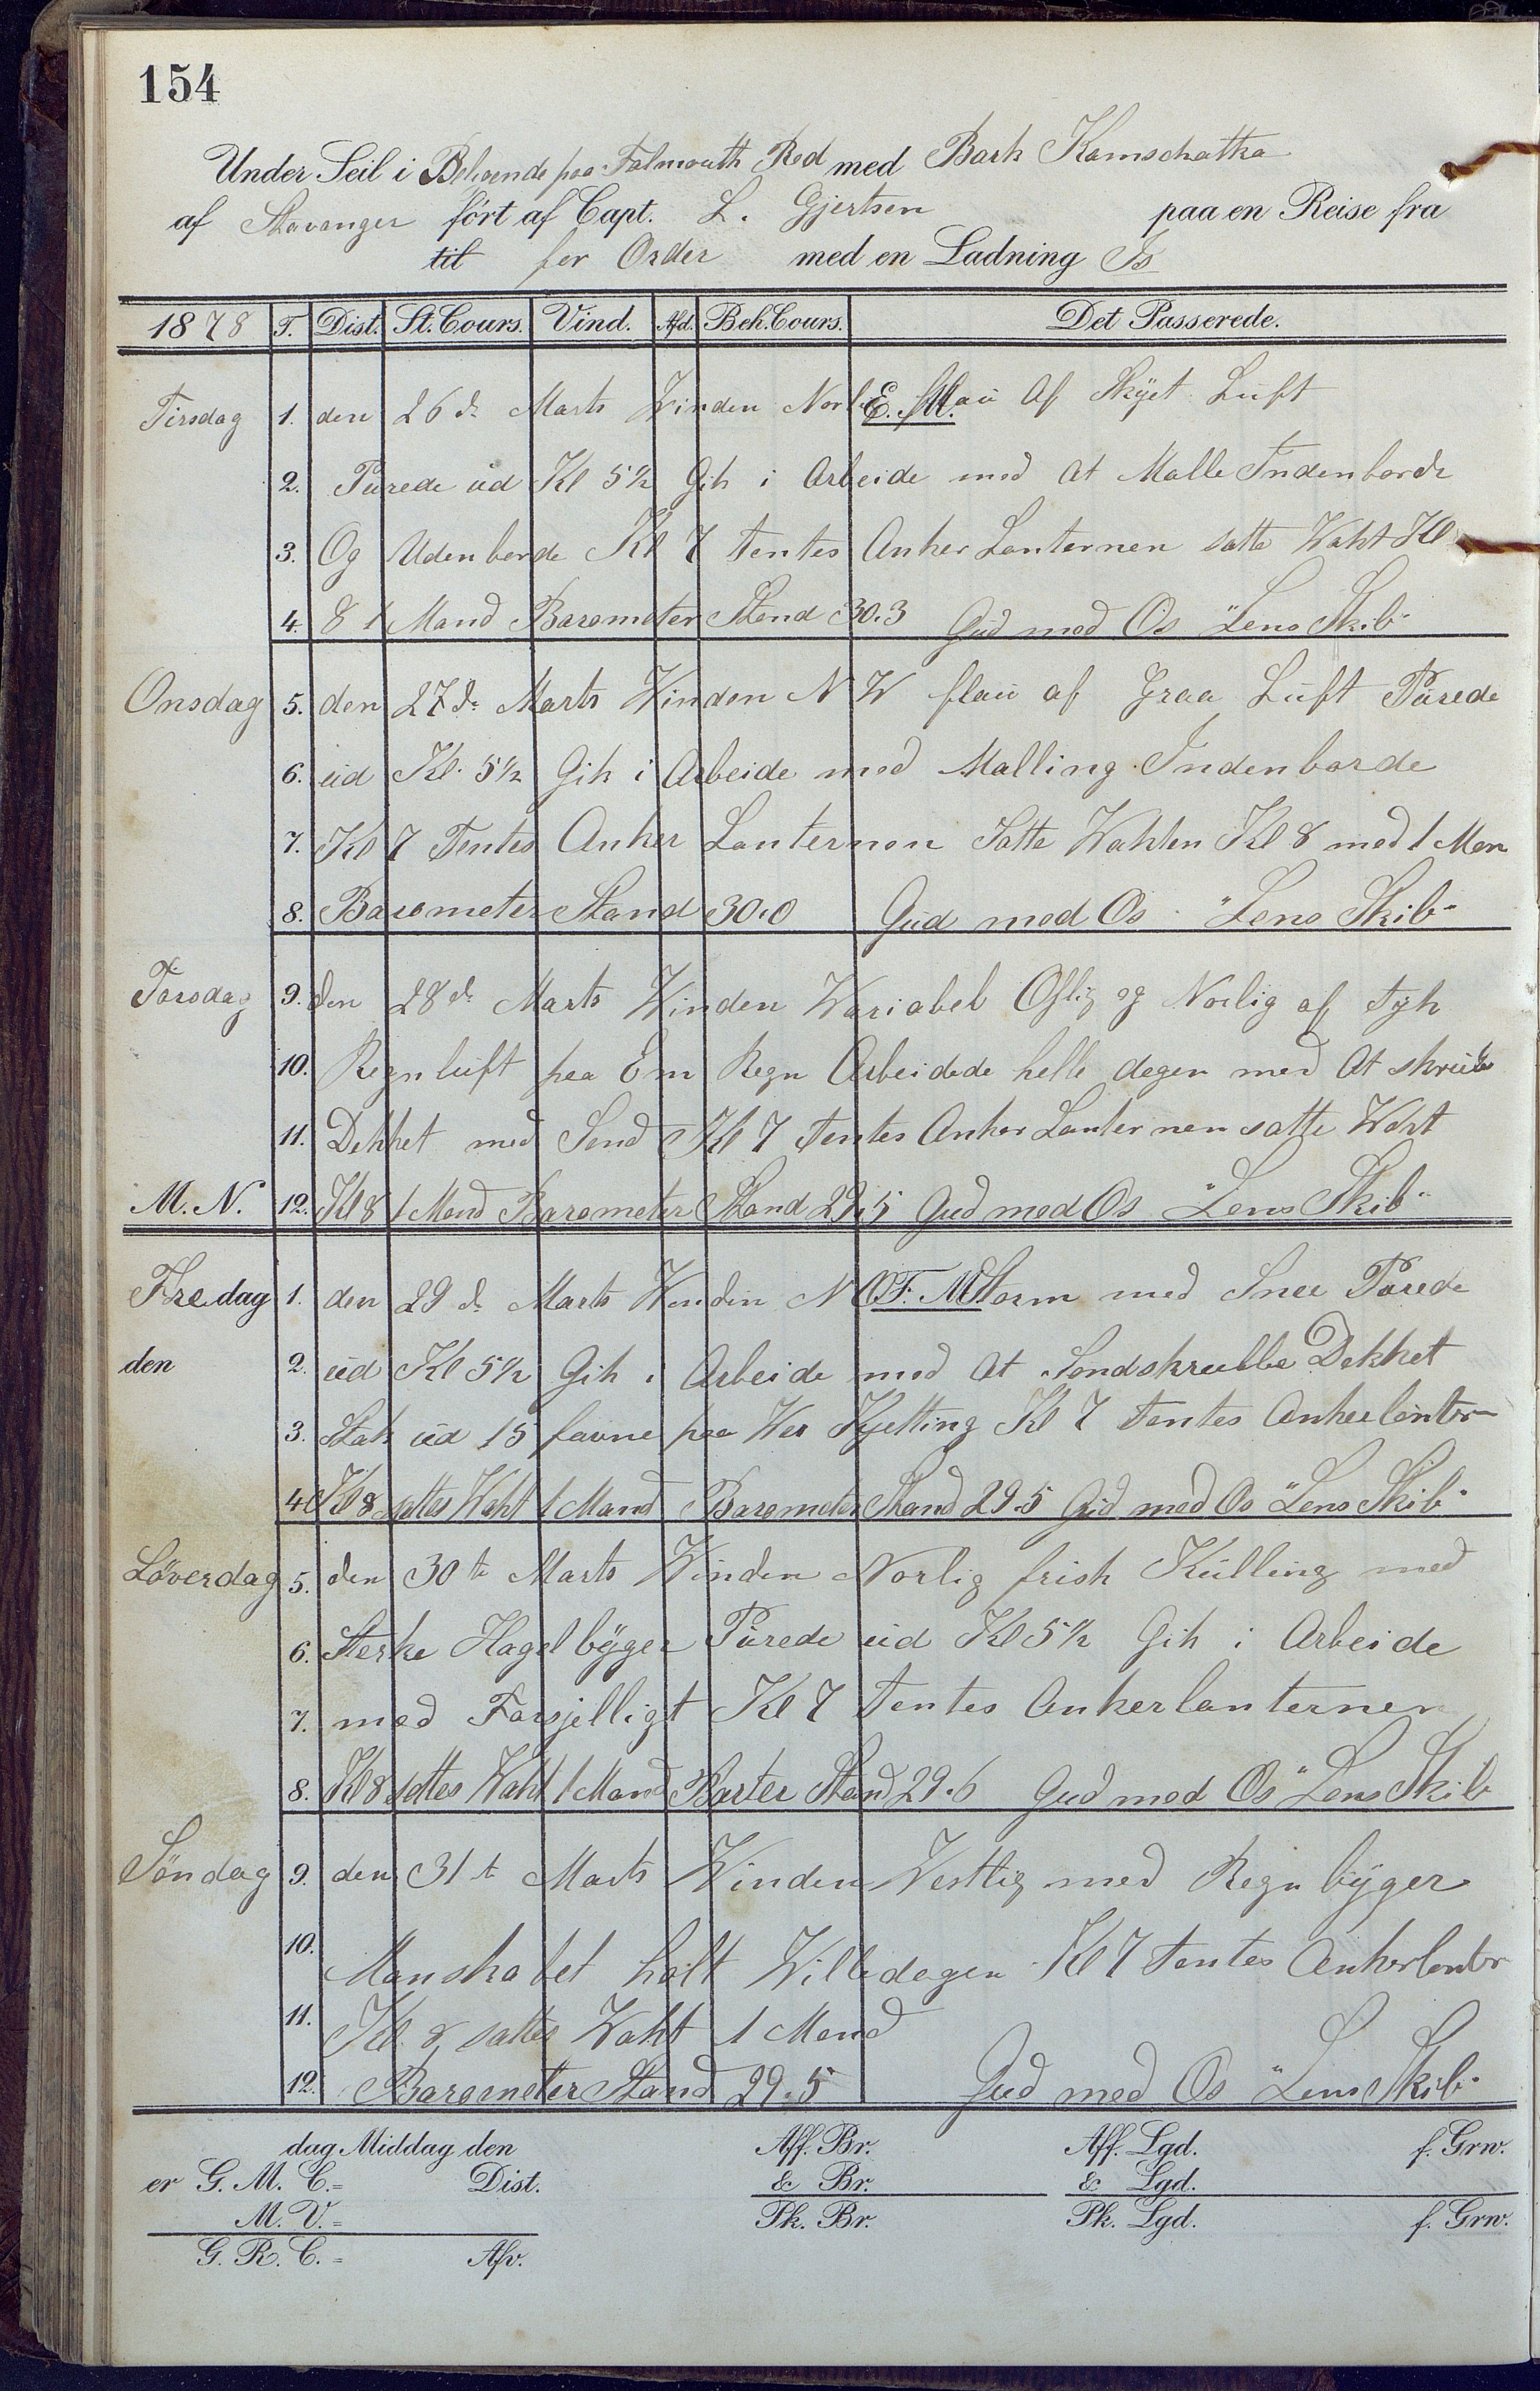 154
Under Seil i Beliende paa Falmouth Red med Bark Kamschatka
af Stavanger fört af Capt. L. Gjertsen paa en Reise fra
til for Order med en Ladning Is
1878 T. Dist. St. Cours. Vind. Afd. Beh. Cours. Det Passerede.
Tirsdag 1. den 26 de Marts Winden Norl E. M. flau Af Skyet Luft
2. Purede ud Kl 5½ Gik i Arbeide med At Malle Indenborde
3. Og Udenborde Kl 7 tentes Anker Lanternen satte Wakt Kl
4. 8 1 Mand Barometer Stand 30.3 Gud med Os "Lens Skib"
Onsdag 5. den 27 de Marts Winden N W flau af Graa Luft Purede
6. ud Kl. 5½ Gik i Arbeide med Malling Indenborde
7. Kl 7 Tentes Anker Lanternen Satte Wakten Kl 8 med 1 Man
8. Barometer Stand 30.0 Gud med Os "Lens Skib"
Torsdag 9. den 28 de Marts Winden Wariabel Oslig og Norlig af tyk
10. Regnluft paa Em Regn Arbeidede helle dagen med At skrubbe
11. Dekket med Sand Kl 7 tentes Anker Lanternen satte Wakt
M. N. 12. Kl 8 1 Mand Barometer Stand 29.5 Gud med Os "Lens Skib"
Fredag 1. den 29 de Marts Winden N O F. M. Storm med Snee Purede
den 2. ud Kl 5½ Gik i Arbeide med At Sandskrubbe Dekket
3. Stak ud 15 favne paa Kjetting Kl 7 tentes Ankerlantr
4. Kl 8 sattes Wakt 1 Mand Barometer Stand 29.5 Gud med Os "Lens Skib"
Löverdag 5. den 30 te Marts Winden Norlig frisk Kulling med
6. Sterke Hagelbyger Purede ud Kl 5½ Gik i Arbeide
7. med Forsjelligt Kl 7 tentes Ankerlanternen
8. Kl 8 sattes Wakt 1 Mand Barter Stand 29.6 Gud med Os "Lens Skib
Söndag 9. den 31 te Marts Winden Vestlig med Regn byger
10. Manskabet holt Willedagen Kl 7 tentes Ankerlantr
11. Kl. 8 sattes Wakt 1 Mand
12. Barometer Stand 29.5 Gud med Os "Lens Skib"
dag Middag den Aff. Br. Aff. Lgd. f. Grw.
er G. M. C.= Dist. & Br. & Lgd.
M. V.= Pk. Br. Pk. Lgd. f. Grw.
G. R. C.= Afv.